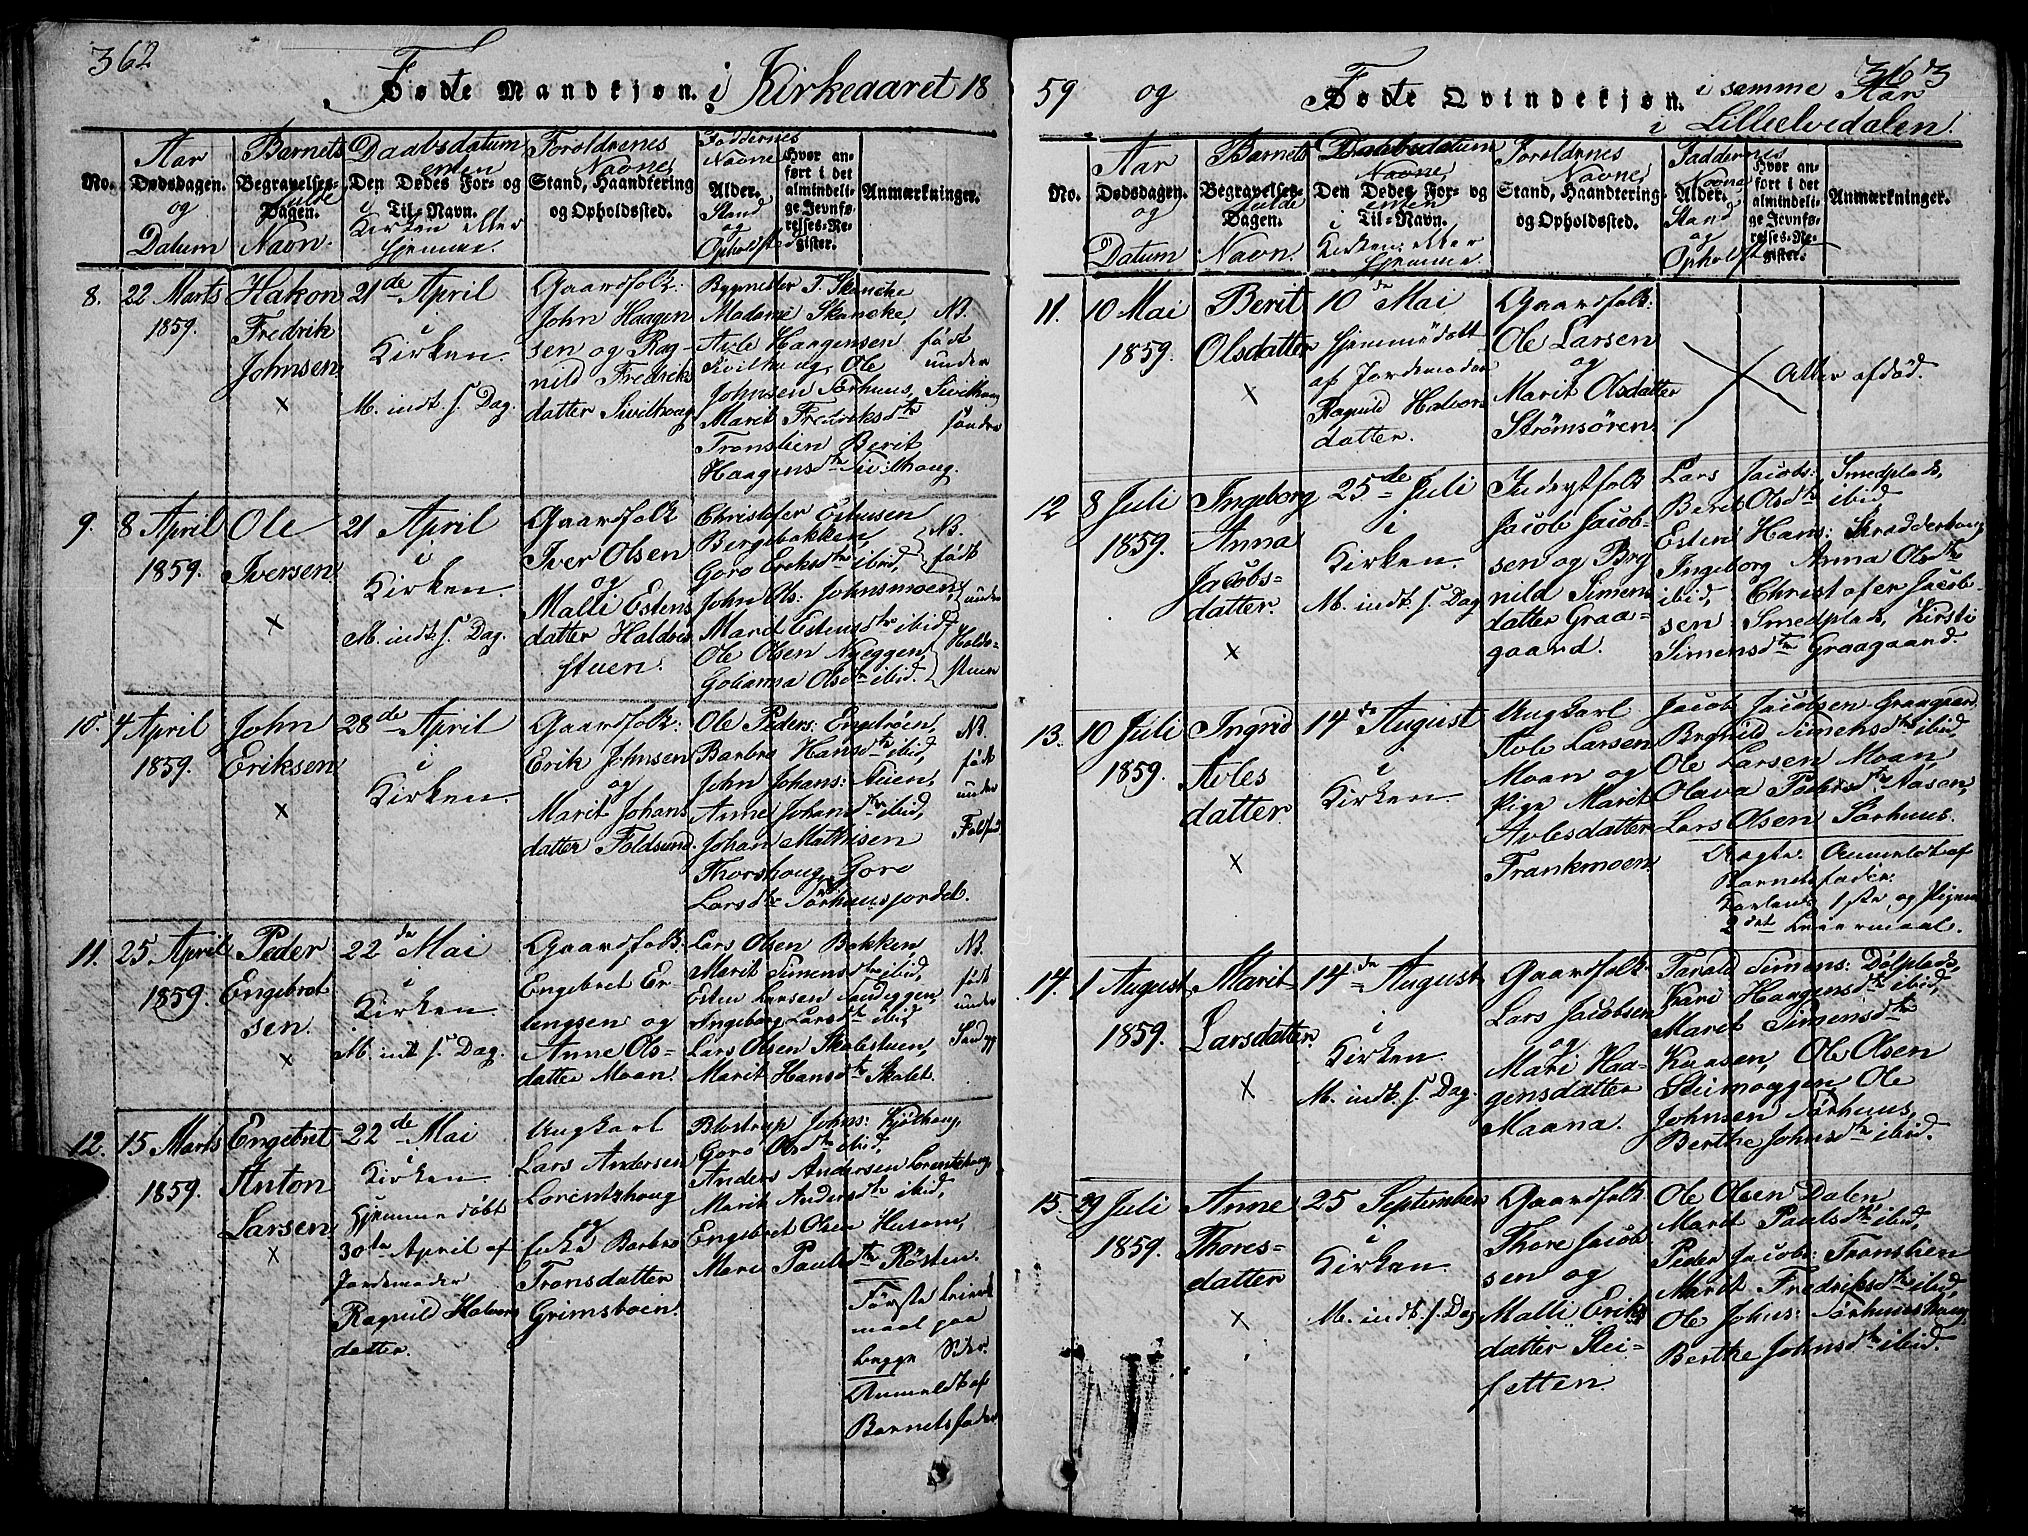 362
Fødte Mandkjøn. i Kirkeaaret 18
No.
Aar
Dødsdagen.
og
Datum
Barnets
Begravelses-
fulde
Dagen.
Navn.
Daabsdatum
enten
Den Dødes For- og
i
Til-Navn.
Kirken eller
hjemme.
Foroldrenes
Navne,
Stand, Haandtering
og Opholdssted.
Faddernes
Navne
Alder.
Stand
og
Opholdsted
Hvor an-
ført i det
almindeli-
ge Jevnfø-
relses-Re-
gister.
Anmærkninger.
8.
22 Marts
1859.
Hakon
Fredrik
Johnsen.
×
21de April
i
Kirken.
M. indt. s. Dag.
Gaardfolk:
John Haagen
sen og Rag-
nild Fredriks
datter Sivilhoug
Bygmester T. Skancke
Madame Skancke,
Avle Haagensen
Kvilhoug, Ole
Johnsen Tørhuus,
Marit Fredriksdtr
Tronslien Berit
Haagensdtr Sivilhoug.
NB.
født
under
Sivilhoug
søndre
9.
8 April
1859.
Ole
Iversen
×
21 April
i
Kirken.
M. indt. s. Dag.
Gaardfolk
Iver Olsen
og
Malli Estens
datter Haldor
stuen.
Christofer Estensen
Bergebakken,
Goro Eriksdtr ibid,
John Ols: Johnsmoen,
Marit Estensdtr ibid,
Ole Olsen Nyeggen,
Golianna Olsdtr ibid.
NB.
født
under
Haldo-
stuen
10.
4 April
1859.
John
Eriksen
×
28de April
i
Kirken.
Gaardfolk:
Erik Johnsen
og
Marit Johans
datter Foldsund.
Ole Peders: Engelrøen,
Barbro Hansdtr ibid,
John Johans: Tuen,
Anne Johansdtr ibid,
Johan Mathisen
Thorshoug, Goro
Larsdtr Tørhuusjordet.
NB.
født
under
11.
25 April
1859.
Peder
Engebret
sen.
×
22de Mai
i
Kirken
M. indt s. Dag.
Gaardfolk:
Engebret Er-
lengsen og
Anne Ols-
datter Moan.
Lars Olsen Bakken
Marit Simensdtr ibid,
Esten Larsen Sandeggen
Ingeborg Larsdtr ibid,
Lars Olsen Skolestuen,
Marit Hansdtr Skolet.
NB.
født
under
Sandegg
12.
15 Marts
1859.
Engebret
Anton
Larsen
×
22de Mai
i
Kirken
hjemmedøbt
30te April af
Jordemoder
Ragnild Halvors
datter.
Ungkarl
Lars Andersen
Lorentzhoug
og
Enke Barbro
Tronsdatter
Grimstoen.
Blostrup Johns: Kjølhoug,
Goro Olsdtr ibid,
Anders Andersen Lorentzhoug,
Marit Andersdtr ibid,
Engebret Olsen Husom,
Mari Paulsdtr Røsten.
Første leiers
maal paa
begge Sider.
Anmeldt af
Barnetsfader
59 og Fødte Qvindekjøn. i samme Aar
363
i Lilleelvedalen.
No.
Aar
Dødsdagen.
og
Datum
Barnets
Begravelses-
fulde
Dagen.
Navn.
Daabsdatum
Navne,
Den Dødes For- og
enten
Til-Navn.
i
Kirken, eller
hjemme.
Foroldrenes
Navne,
Stand, Haandtering
og Opholdssted.
Faddernes
Navne
Alder.
Stand
og
Opholdst
Hvor an-
ført i det
almindeli-
ge Jevnfø-
relses-Re-
gister.
Anmærkninger.
11.
10 Mai
1859.
Berit
Olsdatter
×
10de Mai
hjemmedøbt
af Jordemoder
Ragnild Halvors
datter.
Gaardfolk:
Ole Larsen
og
Marit Olsdatter
Strømsøren.
Atter afdød.
12
8 Juli
1859.
Ingeborg
Anna
Jacobs-
datter.
×
25de Juli
i
Kirken.
M. indt. s. Dag
Indrytfolk
Jacob Jacob-
sen og Bryn
nild Simens
datter Graa-
gaard.
Lars Jacobs: Smedplads,
Berit Olsdtr ibid
Esten Hans: Skradderhoug
Ingeborg Anna Olsdtr
ibid, Christofer Jacob-
sen Smedplads, Kirsti
Simensdtr Graagaard.
13.
10 Juli
1859.
Ingrid
Avles
datter.
×
14de August
i
Kirken.
Ungkarl
Avle Larsen
Moan og
Pige Marit
Avlesdatter
Frankmoen.
Jacob Jacobsen Graagaard,
Brynild Simensdtr ibid,
Ole Larsen Moan,
Olava Pedersdtr Aasen,
Lars Olsen Tørhuus.
Uægte. Anmeldt af
Barnetsfader.
Karlens 1ste og Pigens
2det Leiermaal.
14.
1 August
1859.
Marit
Larsdatter.
×
14de August
i
Kirken.
M. indt. s. Dag.
Gaardfolk
Lars Jacobsen
og
Mari Haa-
gensdatter
Maana.
Tarald Simens: Dølplads,
Kari Haagensdtr ibid,
Marit Simensdtr
Kaasen, Ole Olsen
Steimoeggen Ole
Johnsen Tørhuus,
Berthe Johnsdtr ibid.
15.
29 Juli
1859.
Anne
Thores-
datter
×
25 September
i
Kirken.
M. indt. s. Dag
Gaardfolk
Thore Jacob
sen og
Malli Eriks
datter Stei-
setten.
Ole Olsen Dalen,
Marit Paulsdtr ibid,
Peder Jacobs: Tronslien
Marit Fredriksdtr ibid,
Ole Johns: Tørhuushoug,
Berthe Johnsdtr ibid.